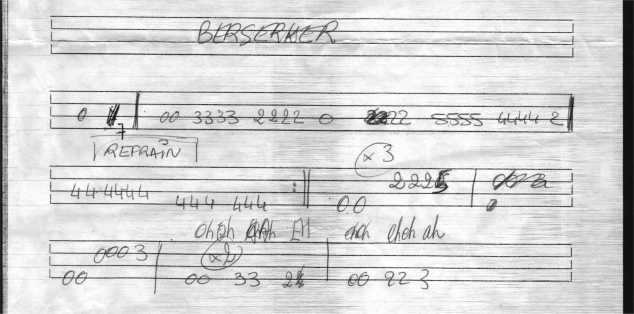 BERSERKER
0 00 3333 2222 0 2222 5555 4444 2
7
REFRAIN x3
444444 444 444 00 222
ohoh EH ohoh ah
0003 x2
00 00 33 00 223